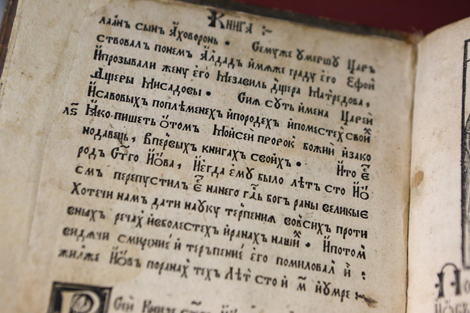 Книга :~
лаан сын Аховоронь · Семуже умершу Царь
ствовал понем Алдад имяже граду его Ефой
ипрозывали жену его Мезавиль дщера Матредова,
дщеры Мисадовы · Сия суть имена Царей
Исавовых поплеменех ипородех ипоместех свой
Іако пишеть ѿтом Моисей пророк божий изако
нодавець, Впервых книгах своих · Ито Е҃
род Ст҃го Иова, Иегда ему было лет сто И҃О
см перепустил Е҃ нанего гд҃ь богъ раны великие
Хотечи нам дати науку терпения вовсих проти
вных речах иеболестех иранах наший · Ипотом
видячи смирение и терьпение его помиловал и :
жилже Иов поранах тех лет сто и М҃ иумре :~
Сей Книзе